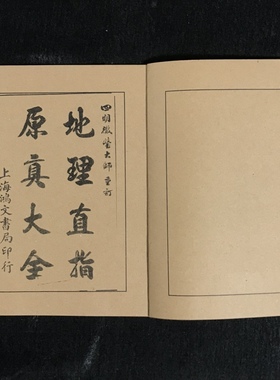 四明徹瑩大師重訂
地理直指
原真大全
上海鴻文書局印行